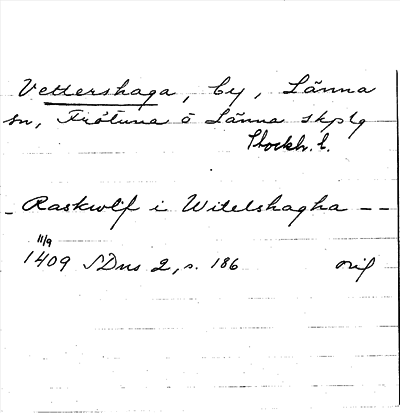 Vettershaga, by, Länna
sn, Frötuna o Länna skplg
Stockh. l.
- Raskwlf i Witelshagha --
11/9
1409 SDns 2, s. 186 orig